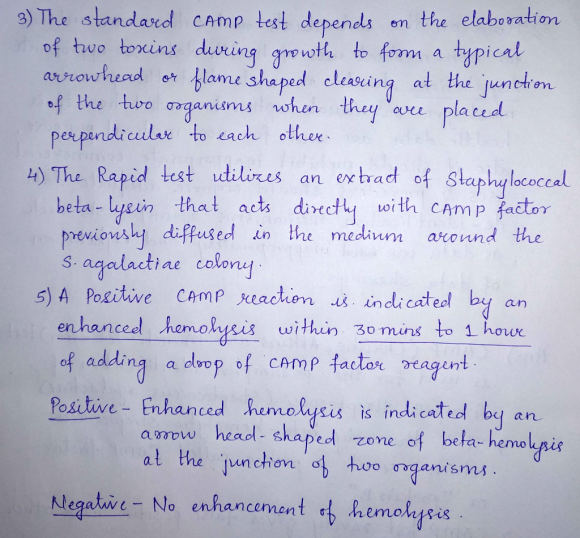 3) The standard CAMP test depends on the elaboration
of two toxins during growth to form a typical
arrowhead or flame shaped clearing at the junction
of the two organisms when they are placed
perpendicular to each other.
4) The Rapid test utilizes an extract of Staphylococcal
beta-lysin that acts directly with CAMP factor
previously diffused in the medium around the
S. agalactiae colony.
5) A Positive CAMP reaction is indicated by an
enhanced hemolysis within 30 mins to 1 hour
of adding a drop of CAMP factor reagent.
Positive - Enhanced hemolysis is indicated by an
arrow head-shaped zone of beta-hemolysis
at the junction of two organisms.
Negative - No enhancement of hemolysis.